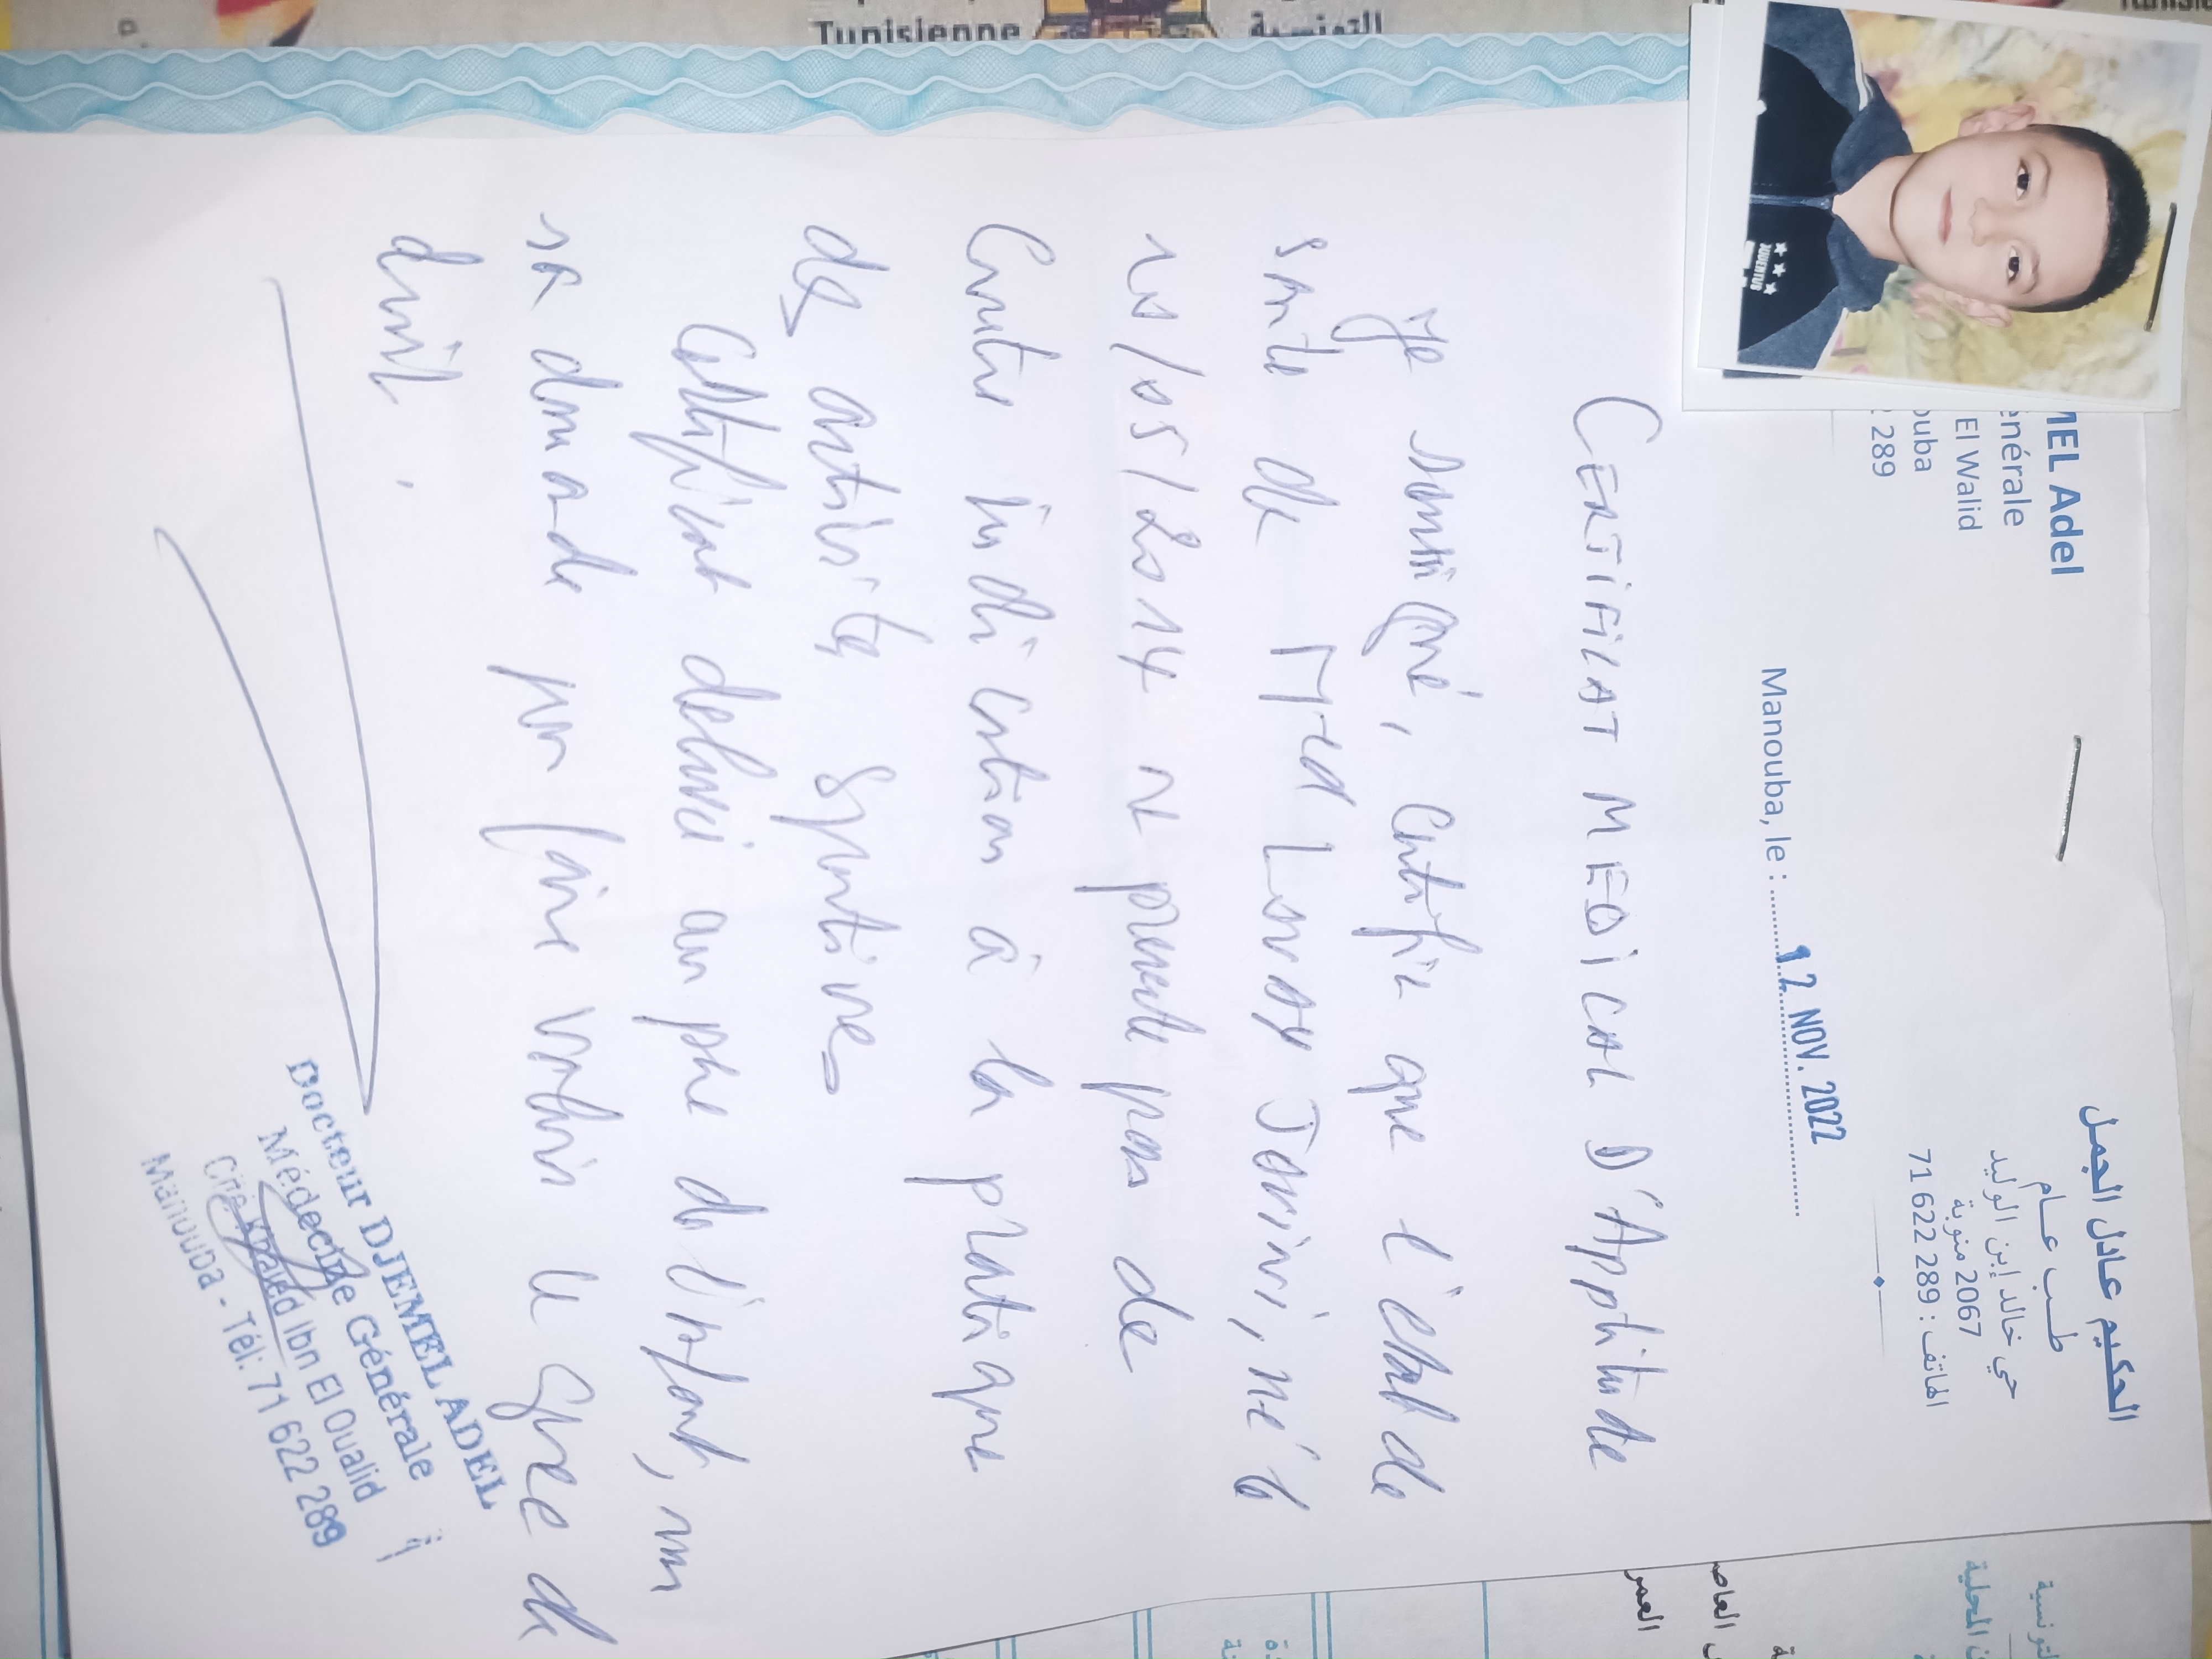 Tunisienne
التونسية
MEL Adel
énérale
El Walid
ouba
289
الحكيم عادل الجمل
طب عام
حي خالد إبن الوليد
2067 منوبة
الهاتف : 289 622 71
JUVENTUS
Manouba, le : 12 NOV. 2022
CERTIFICAT MEDICAL D'Aptitude
Je soussigné, certifie que l'état de
santé de Med Louay Jouini, né le
/05/2014 ne présente pas de
Contre indication à la pratique
des activités sportives
Certificat délivré au père de l'enfant, sur
sa demande pour faire valoir ce que de
droit.
Docteur DJEMEL ADEL
Médecine Générale
Cité Khaled Ibn El Oualid
Manouba - Tél: 71 622 289
تونسية
المحلية
العاصمة
العمر